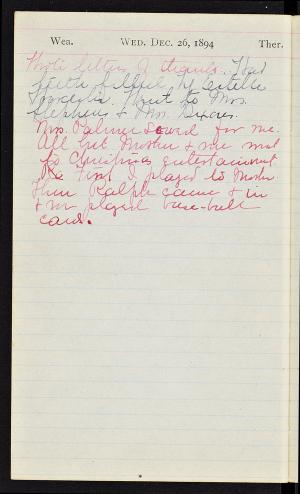 Wea. WED. DEC. 26, 1894 Ther.
Wrote letters of thanks. Had
teeth filled, by
Went to Mrs.
Stephens & Mrs.
Mrs. Palmer sewed for me.
All but Mother & me went
to Christmas entertainment
First I played to Mother
then Ralph came in
& we played base-ball
cards.